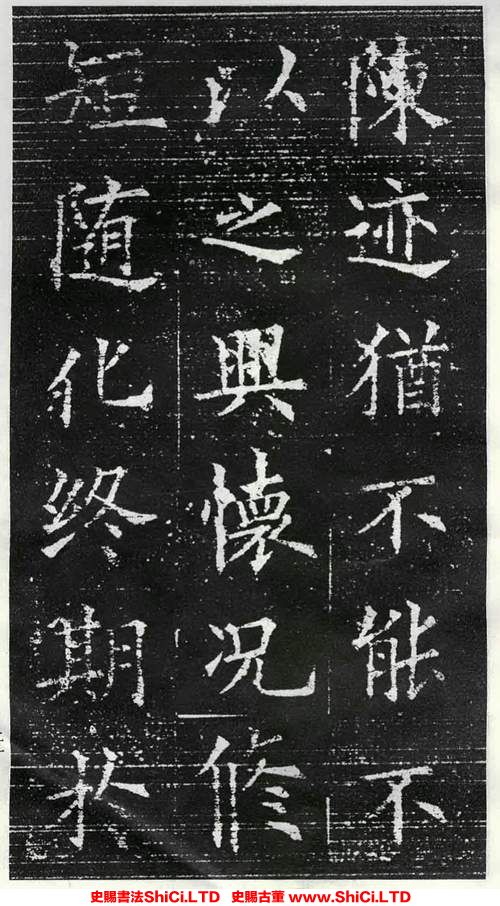 陳迹猶不能不
以之興懷况修
短随化终期於
史賜書法ShiCi.LTD 史賜古董 www.ShiCi.LTD